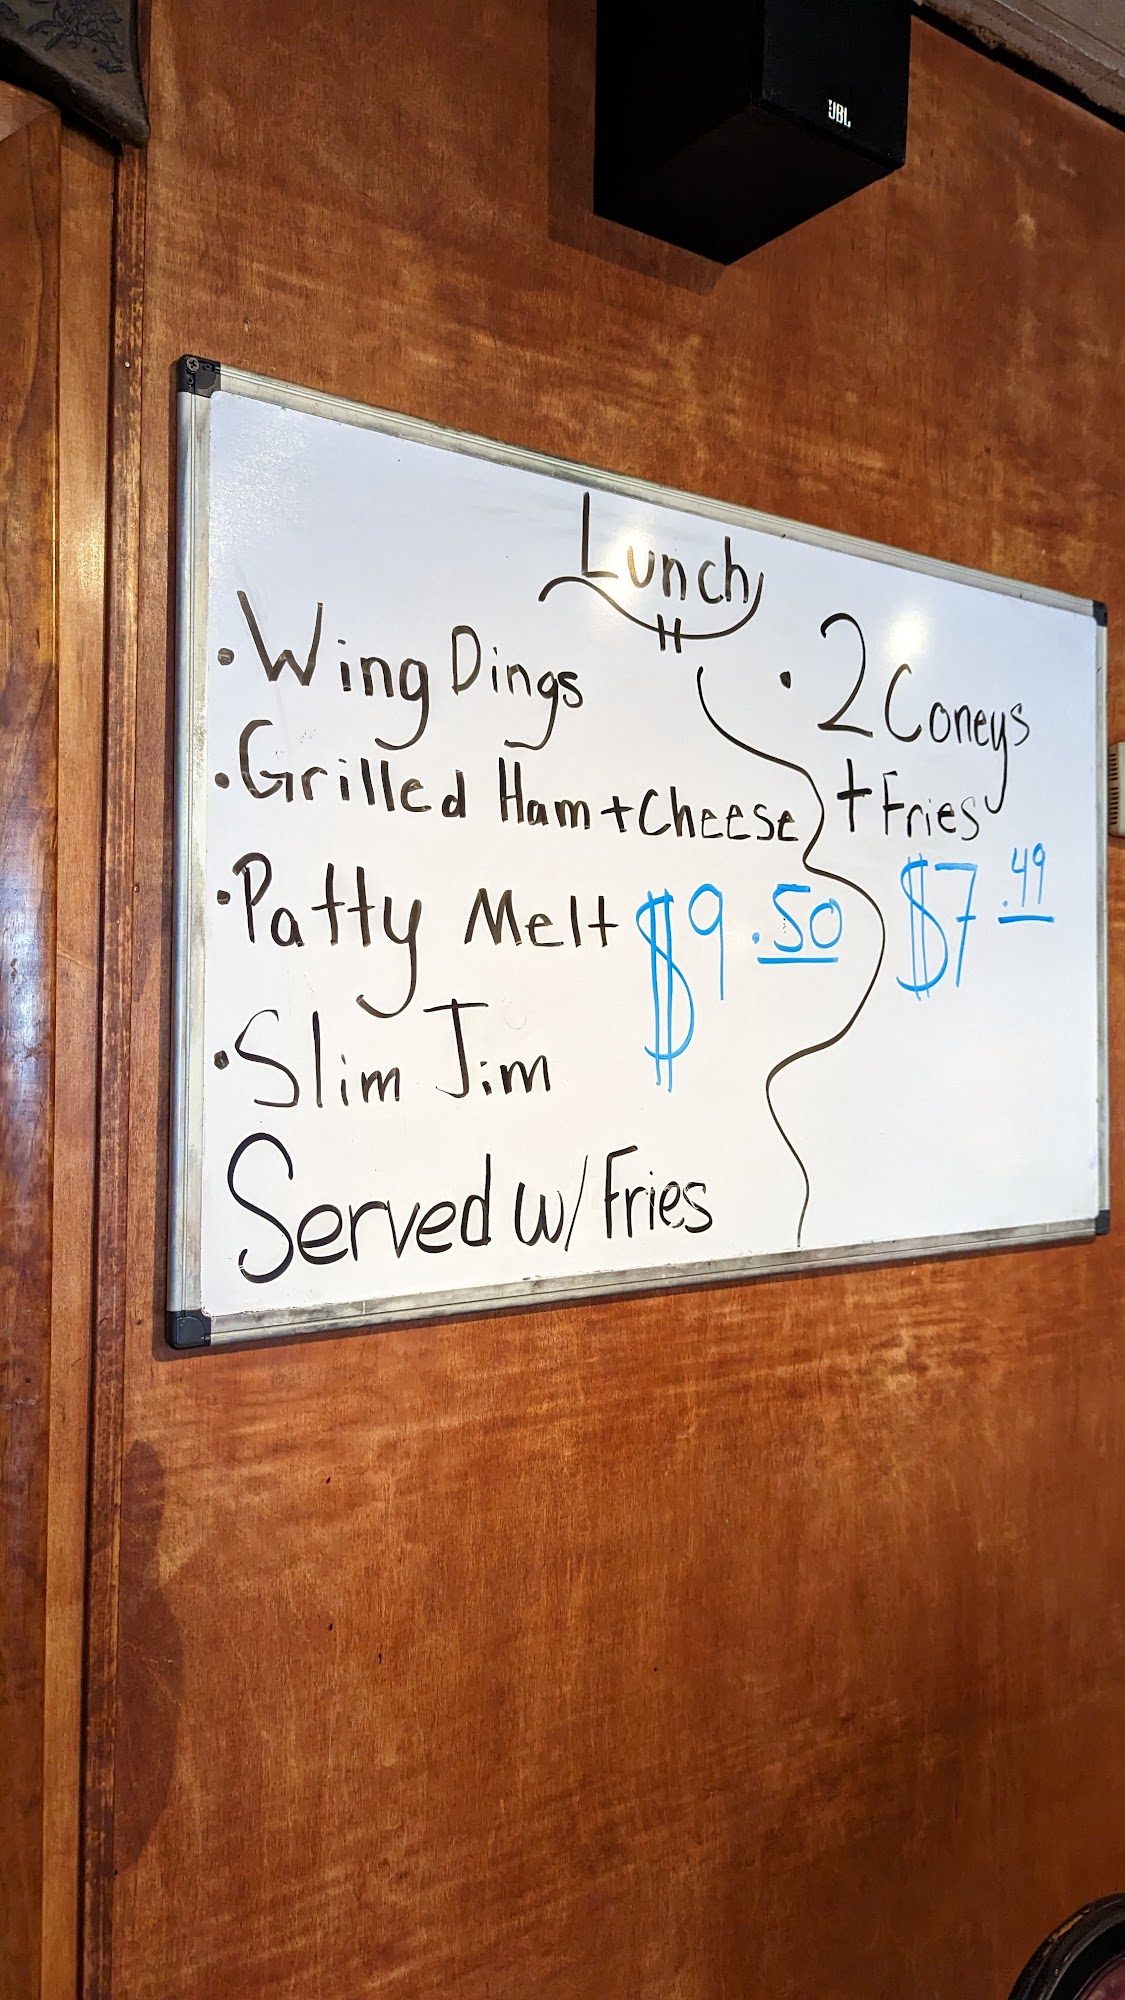 JBL
Lunch
• Wing Dings
• Grilled Ham + Cheese
• Patty Melt $9.50
• Slim Jim
Served w/ Fries
• 2 Coneys
+ Fries
$7.49